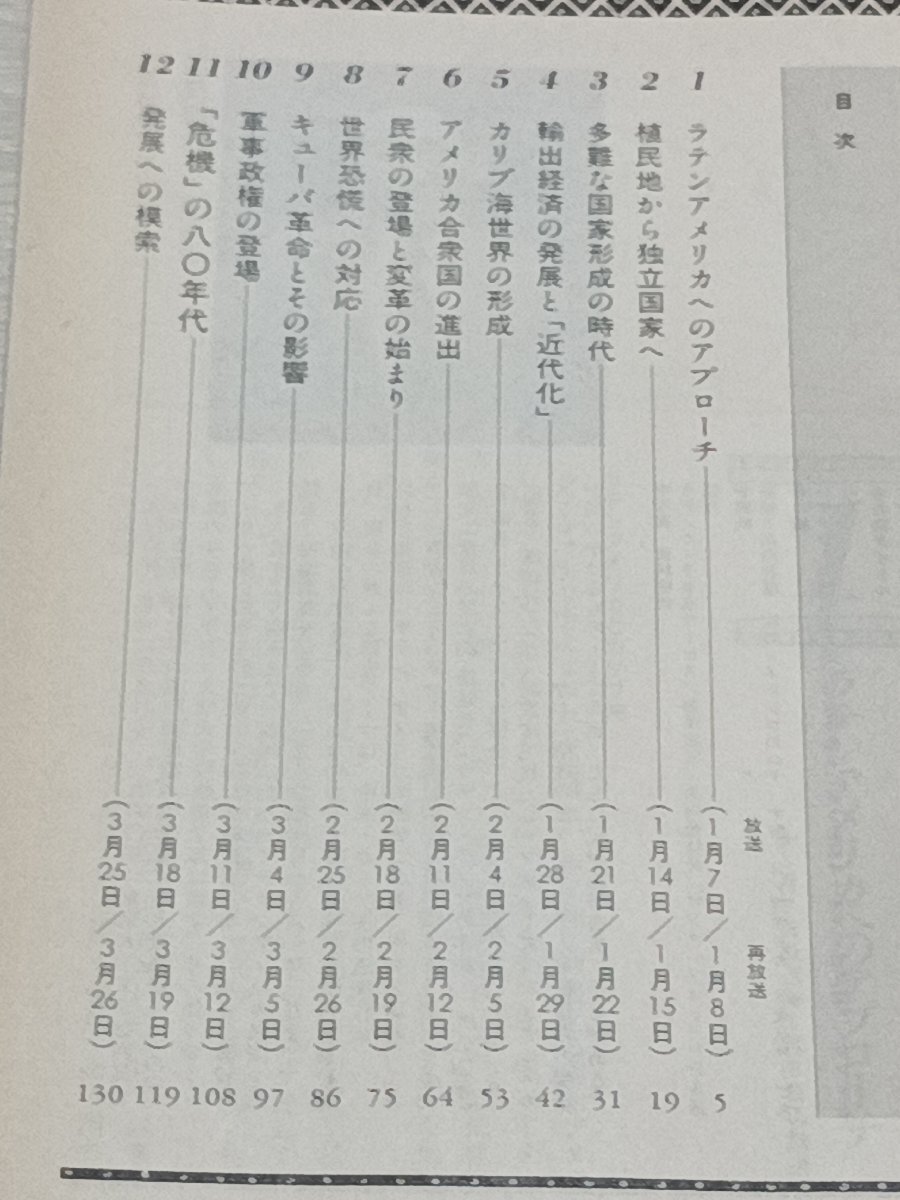 目次
放送
再放送
1 ラテンアメリカへのアプローチ (1月7日/1月8日) 5
2 植民地から独立国家へ (1月14日/1月15日) 19
3 多難な国家形成の時代 (1月21日/1月22日) 31
4 輸出経済の発展と「近代化」 (1月28日/1月29日) 42
5 カリブ海世界の形成 (2月4日/2月5日) 53
6 アメリカ合衆国の進出 (2月11日/2月12日) 64
7 民衆の登場と変革の始まり (2月18日/2月19日) 75
8 世界恐慌への対応 (2月25日/2月26日) 86
9 キューバ革命とその影響 (3月4日/3月5日) 97
10 軍事政権の登場 (3月11日/3月12日) 108
11 「危機」の八〇年代 (3月18日/3月19日) 119
12 発展への模索 (3月25日/3月26日) 130